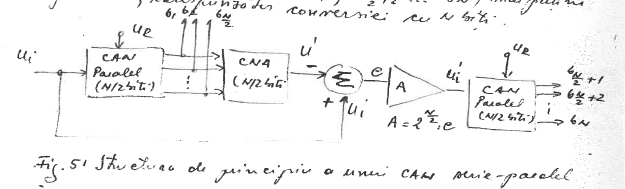 conversiei cu N biți.
b1 b2 bN/2
uR
ui
CAN
Paralel
(N/2 biți)
CNA
(N/2 biți)
u'
-
Σ
+
ui
e
A
A = 2^N/2 . e
ui'
uR
CAN
Paralel
(N/2 biți)
bN/2+1
bN/2+2
bN
Fig. 51 Structura de principiu a unui CAN serie-paralel